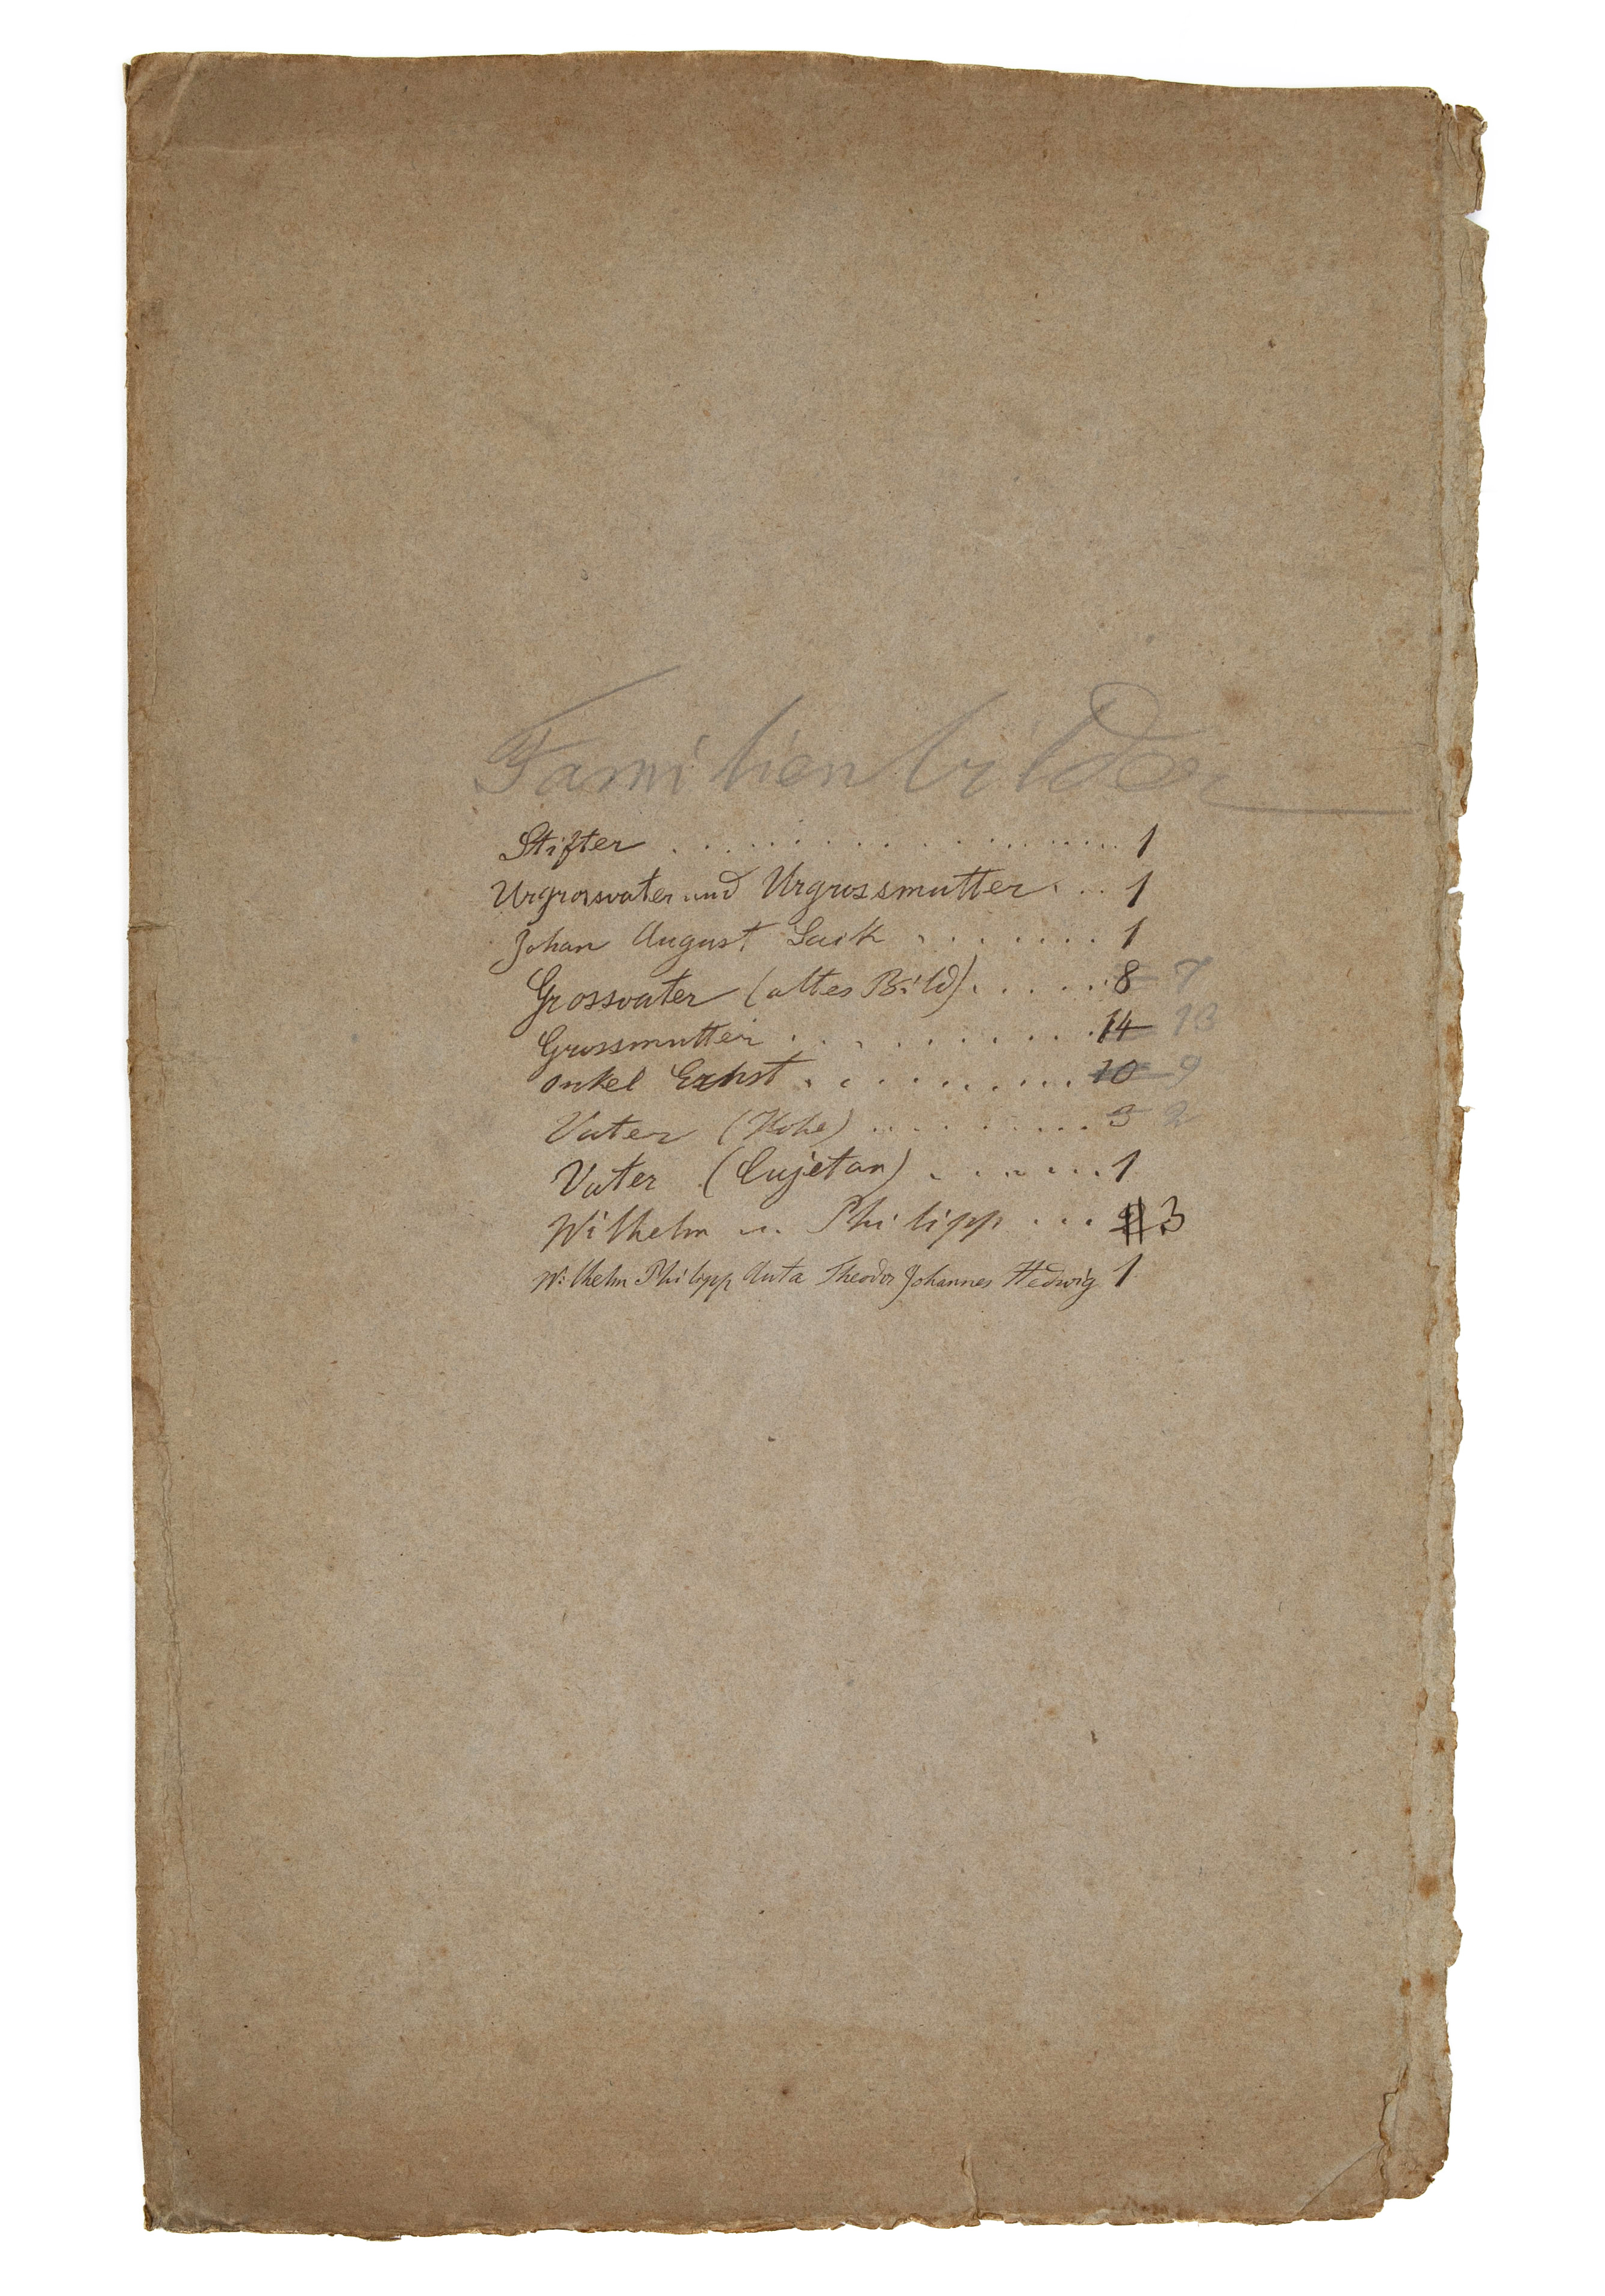 Familienbilder
Stifter . . . . . . . . . . . . . . . . . 1
Urgrossvater und Urgrossmutter . . . 1
Johan August Sack . . . . . . . 1
Grossvater (altes Bild) . . . . . . 8 7
Grossmutter . . . . . . . . . . 14 13
Onkel Ernst . . . . . . . . . . 10 9
Vater (Hohe) . . . . . . . . . 3 2
Vater (Cujetan) . . . . . . . 1
Wilhelm u. Philipp . . . 3
Wilhelm Philipp Theodor Johannes Hedwig 1